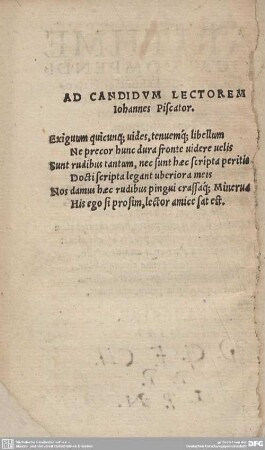 AD CANDIDVM LECTOREM
Iohannes Piscator.
Exiguum quicunq; uides, tenuemq; libellum
Ne precor hunc dura fronte uidere uelis
Sunt rudibus tantum, nec sunt hæc scripta peritis
Docti scripta legant uberiora meis
Nos damus hæc rudibus pingui crassaq; Minerua
His ego si prosim, lector amice sat est.